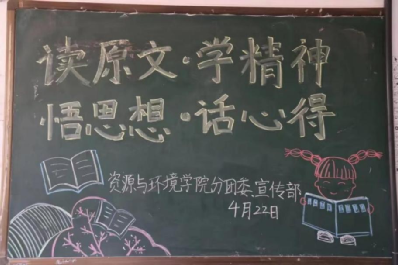 读原文·学精神
悟思想·话心得
资源与环境学院分团委宣传部
4月22日